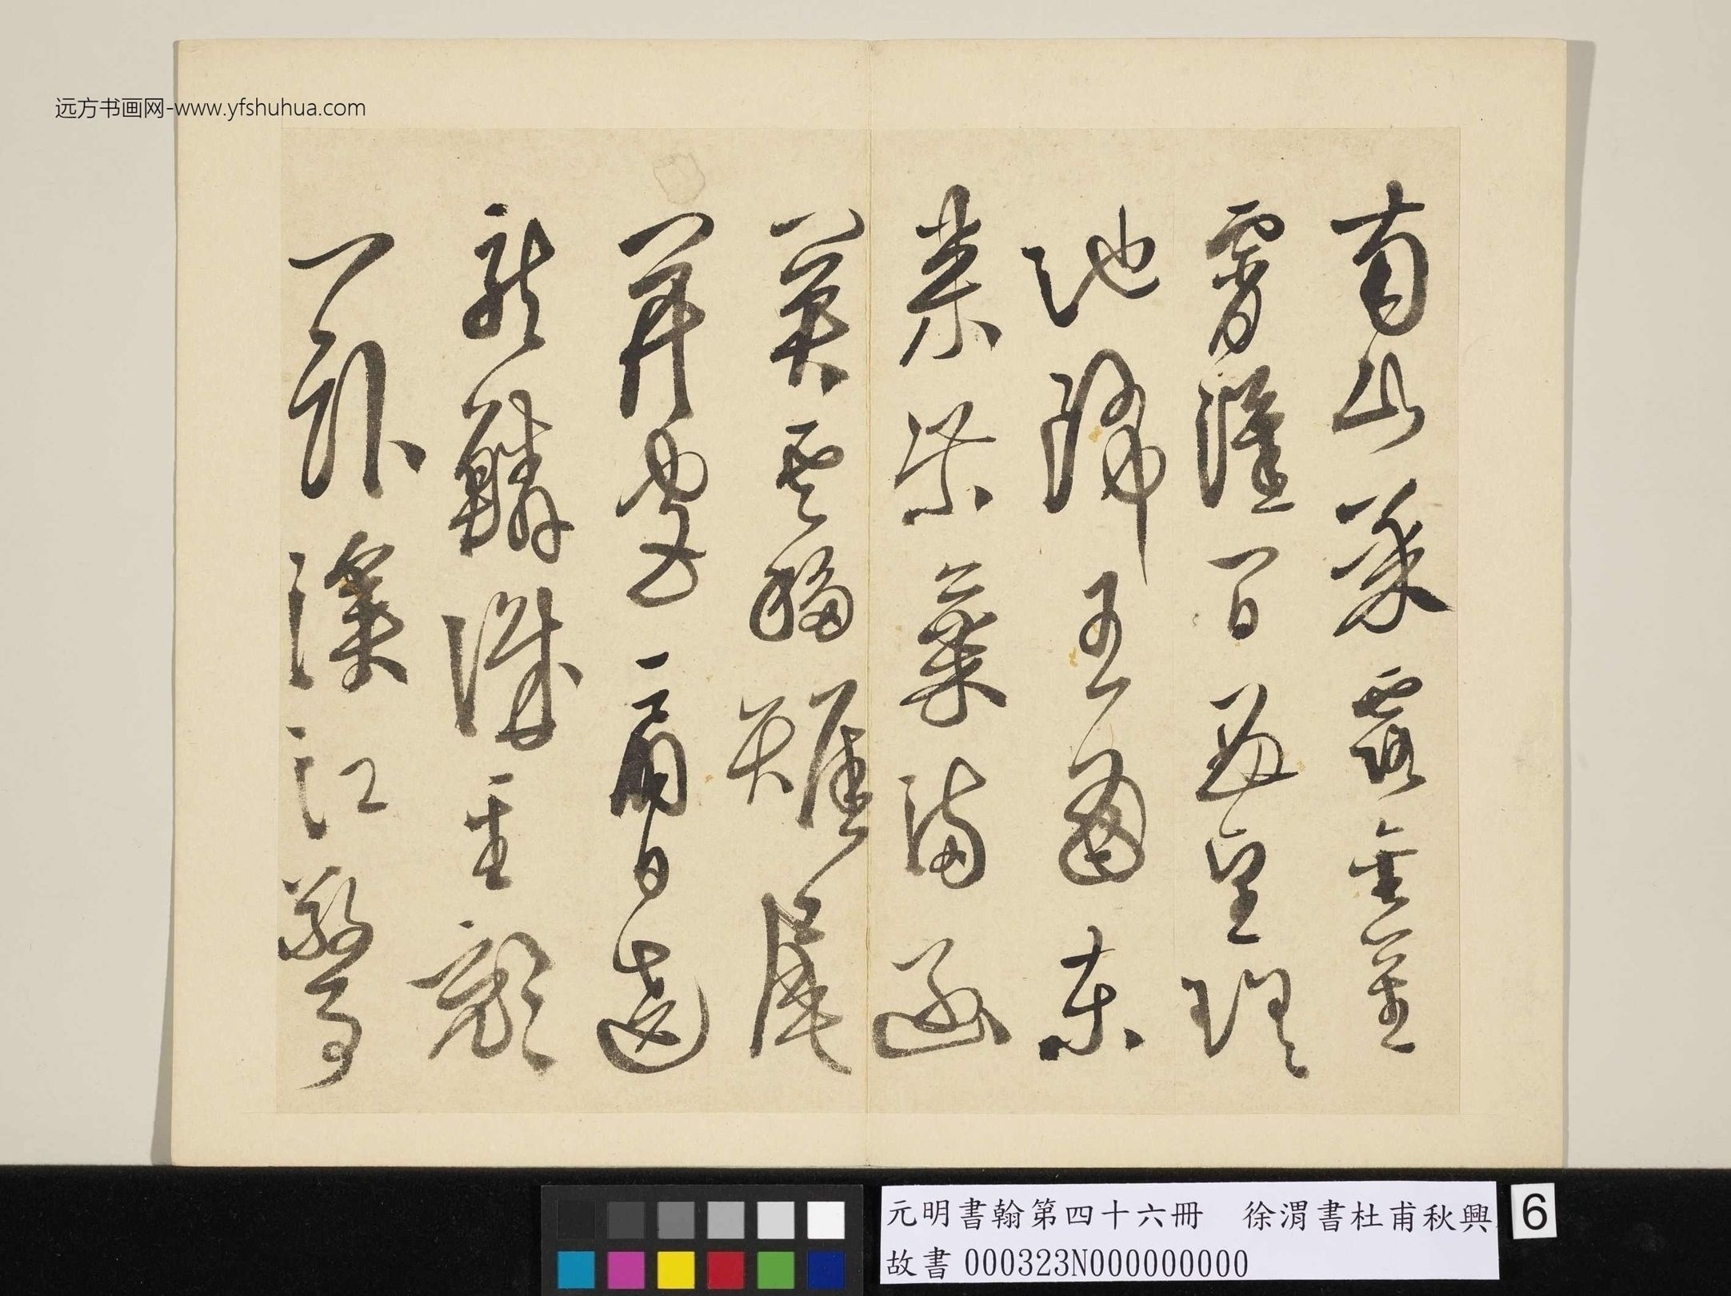 远方书画网-www.yfshuhua.com
南山承露金莖
霄漢間西望瑤
池降王母東
來紫氣滿函
關雲移雉尾
開宮扇日繞
龍鱗識聖顏
一臥滄江驚
元明書翰第四十六冊　徐渭書杜甫秋興
故書 000323N000000000
6